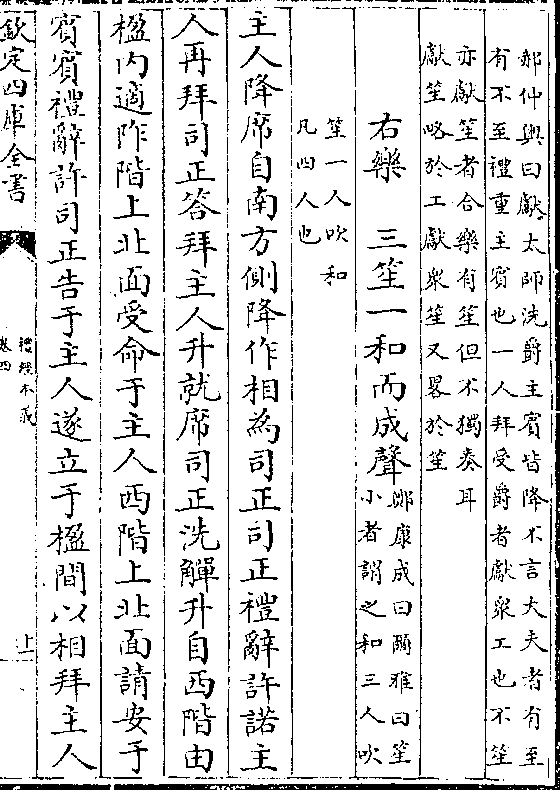 郝仲輿曰獻太師洗爵主賓皆降不言大夫者有至
有不至禮重主賓也一人拜受爵者獻衆工也不笙
亦獻笙者合樂有笙但不獨奏耳
獻笙略於工獻衆笙又畧於笙
右樂　三笙一和而成聲
鄭康成曰爾雅曰笙
小者謂之和三人吹
笙一人吹和
凡四人也
主人降席自南方側降作相為司正司正禮辭許諾主
人再拜司正答拜主人升就席司正洗觶升自西階由
楹内適阼階上北面受命于主人西階上北面請安于
賓賓禮辭許司正告于主人遂立于楹間以相拜主人
欽定四庫全書
禮經本義
卷四
上